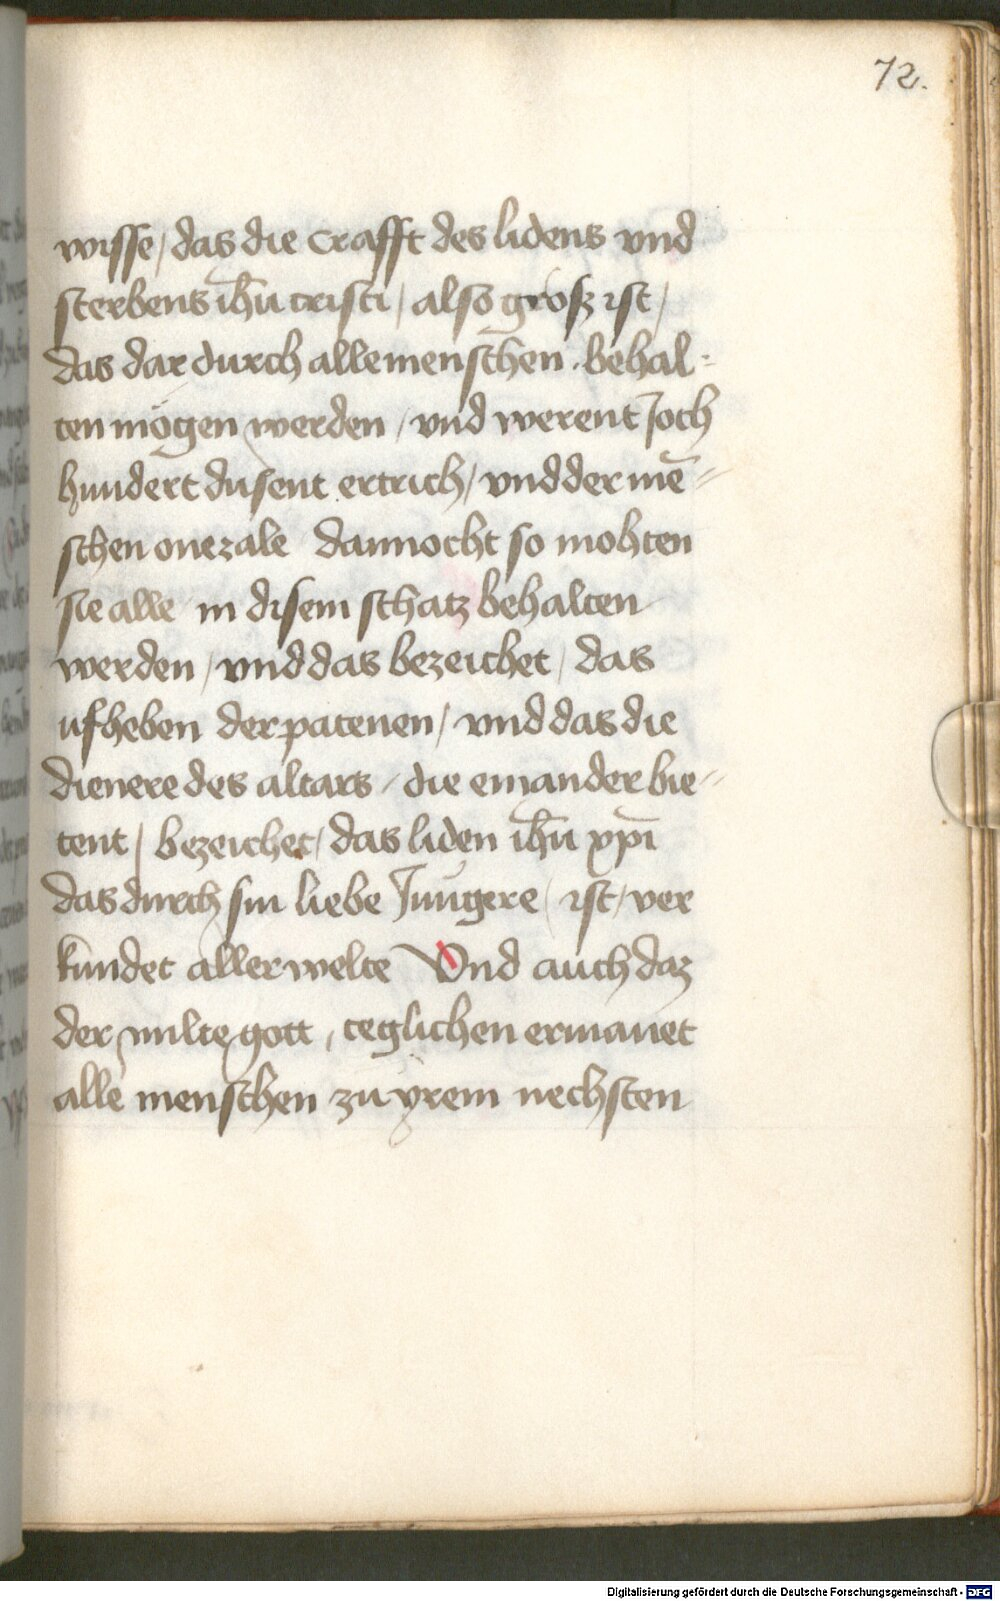 72.
wisse / das die crafft des lidens vnd
sterbens ih̄u cristi / also grosz ist /
das dar durch alle menschen behal-
ten mögen werden / vnd werent Joch
hundert dusent ertrich / vnd der mē-
schen one zale dannocht so mohten
sie alle in disem schatz behalten
werden / vnd das bezeichet / das
ufheben der patenen / vnd das die
dienere des altars / die einander bie-
tent / bezeichet / das liden ih̄u xp̄i
das durch sin liebe Jungere / ist / ver
kundet aller welte Vnd auch daz
der milte gott / teglichen ermanet
alle menschen zu yrem nechsten
Digitalisierung gefördert durch die Deutsche Forschungsgemeinschaft - DFG